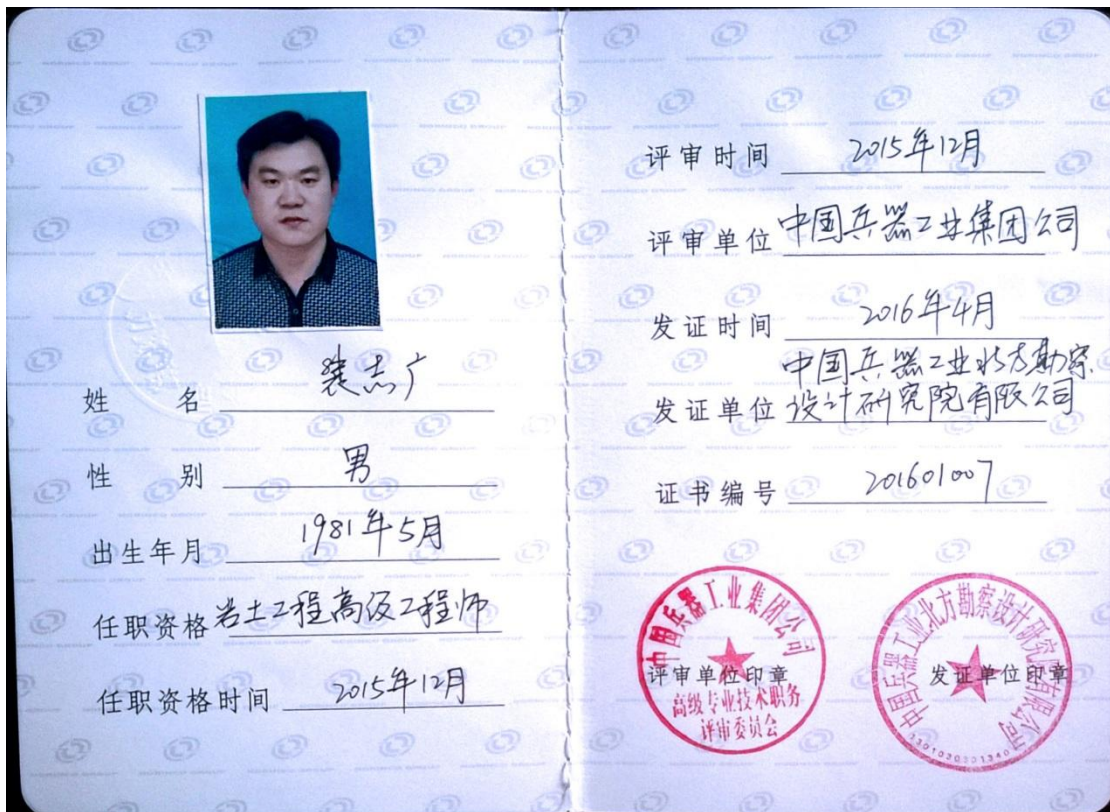 姓名 裴志广
性别 男
出生年月 1981年5月
任职资格 岩土工程高级工程师
任职资格时间 2015年12月
评审时间 2015年12月
评审单位 中国兵器工业集团公司
发证时间 2016年4月
发证单位 中国兵器工业北方勘察
设计研究院有限公司
证书编号 201601007
中国兵器工业集团公司
评审单位印章
高级专业技术职务
评审委员会
中国兵器工业北方勘察设计研究院有限公司
发证单位印章